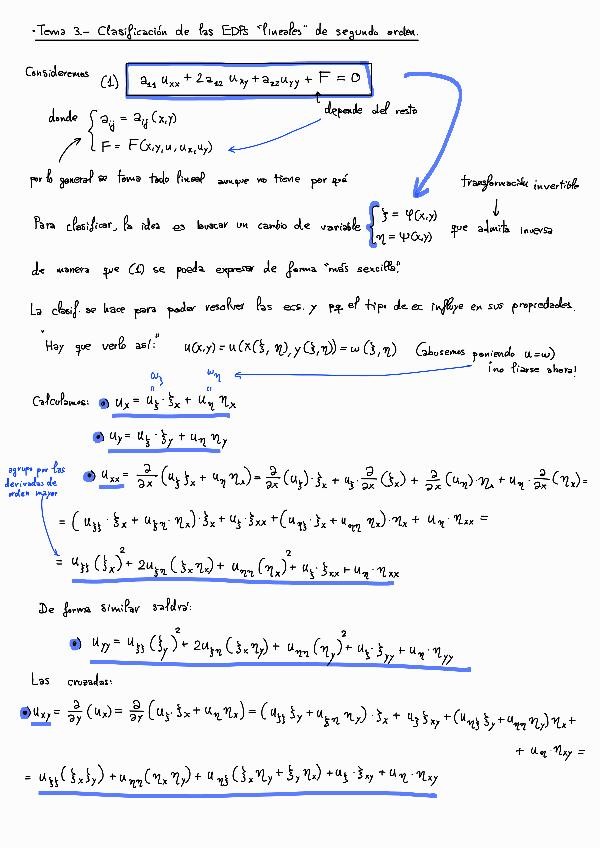 · Tema 3.- Clasificación de las EDPs "lineales" de segundo orden.
Consideremos (1) a₁₁ uₓₓ + 2a₁₂ uₓᵧ + a₂₂ uᵧᵧ + F = 0
depende del resto
donde { aᵢⱼ = aᵢⱼ(x,y)
F = F(x,y,u,uₓ,uᵧ)
por lo general se toma todo lineal aunque no tiene por qué
transformación invertible
Para clasificar, la idea es buscar un cambio de variable { ξ = φ(x,y)
η = ψ(x,y) que admita inversa
de manera que (1) se pueda expresar de forma "más sencilla".
La clasif. se hace para poder resolver las ecs. y pq el tipo de ec influye en sus propiedades.
"Hay que verlo así:" u(x,y) = u(x(ξ,η), y(ξ,η)) = ω(ξ,η) (abusemos poniendo u=ω)
¡no liarse ahora!
ω_ξ ω_η
Calculamos: •) u_x = u_ξ · ξ_x + u_η η_x
•) u_y = u_ξ · ξ_y + u_η η_y
agrupo por las
derivadas de
orden mayor
•) u_xx = ∂/∂x (u_ξ ξ_x + u_η η_x) = ∂/∂x (u_ξ) · ξ_x + u_ξ · ∂/∂x (ξ_x) + ∂/∂x (u_η) · η_x + u_η · ∂/∂x (η_x) =
= (u_ξξ · ξ_x + u_ξη · η_x) · ξ_x + u_ξ · ξ_xx + (u_ηξ · ξ_x + u_ηη η_x) · η_x + u_η · η_xx =
= u_ξξ (ξ_x)² + 2u_ξη (ξ_x η_x) + u_ηη (η_x)² + u_ξ · ξ_xx + u_η · η_xx
De forma similar saldrá:
•) u_yy = u_ξξ (ξ_y)² + 2u_ξη (ξ_x η_y) + u_ηη (η_y)² + u_ξ · ξ_yy + u_η · η_yy
Las cruzadas:
•) u_xy = ∂/∂y (u_x) = ∂/∂y (u_ξ · ξ_x + u_η η_x) = (u_ξξ ξ_y + u_ξη η_y) · ξ_x + u_ξ ξ_xy + (u_ηξ ξ_y + u_ηη η_y) η_x +
+ u_η · η_xy =
= u_ξξ (ξ_x ξ_y) + u_ηη (η_x η_y) + u_ηξ (ξ_x η_y + ξ_y η_x) + u_ξ · ξ_xy + u_η · η_xy